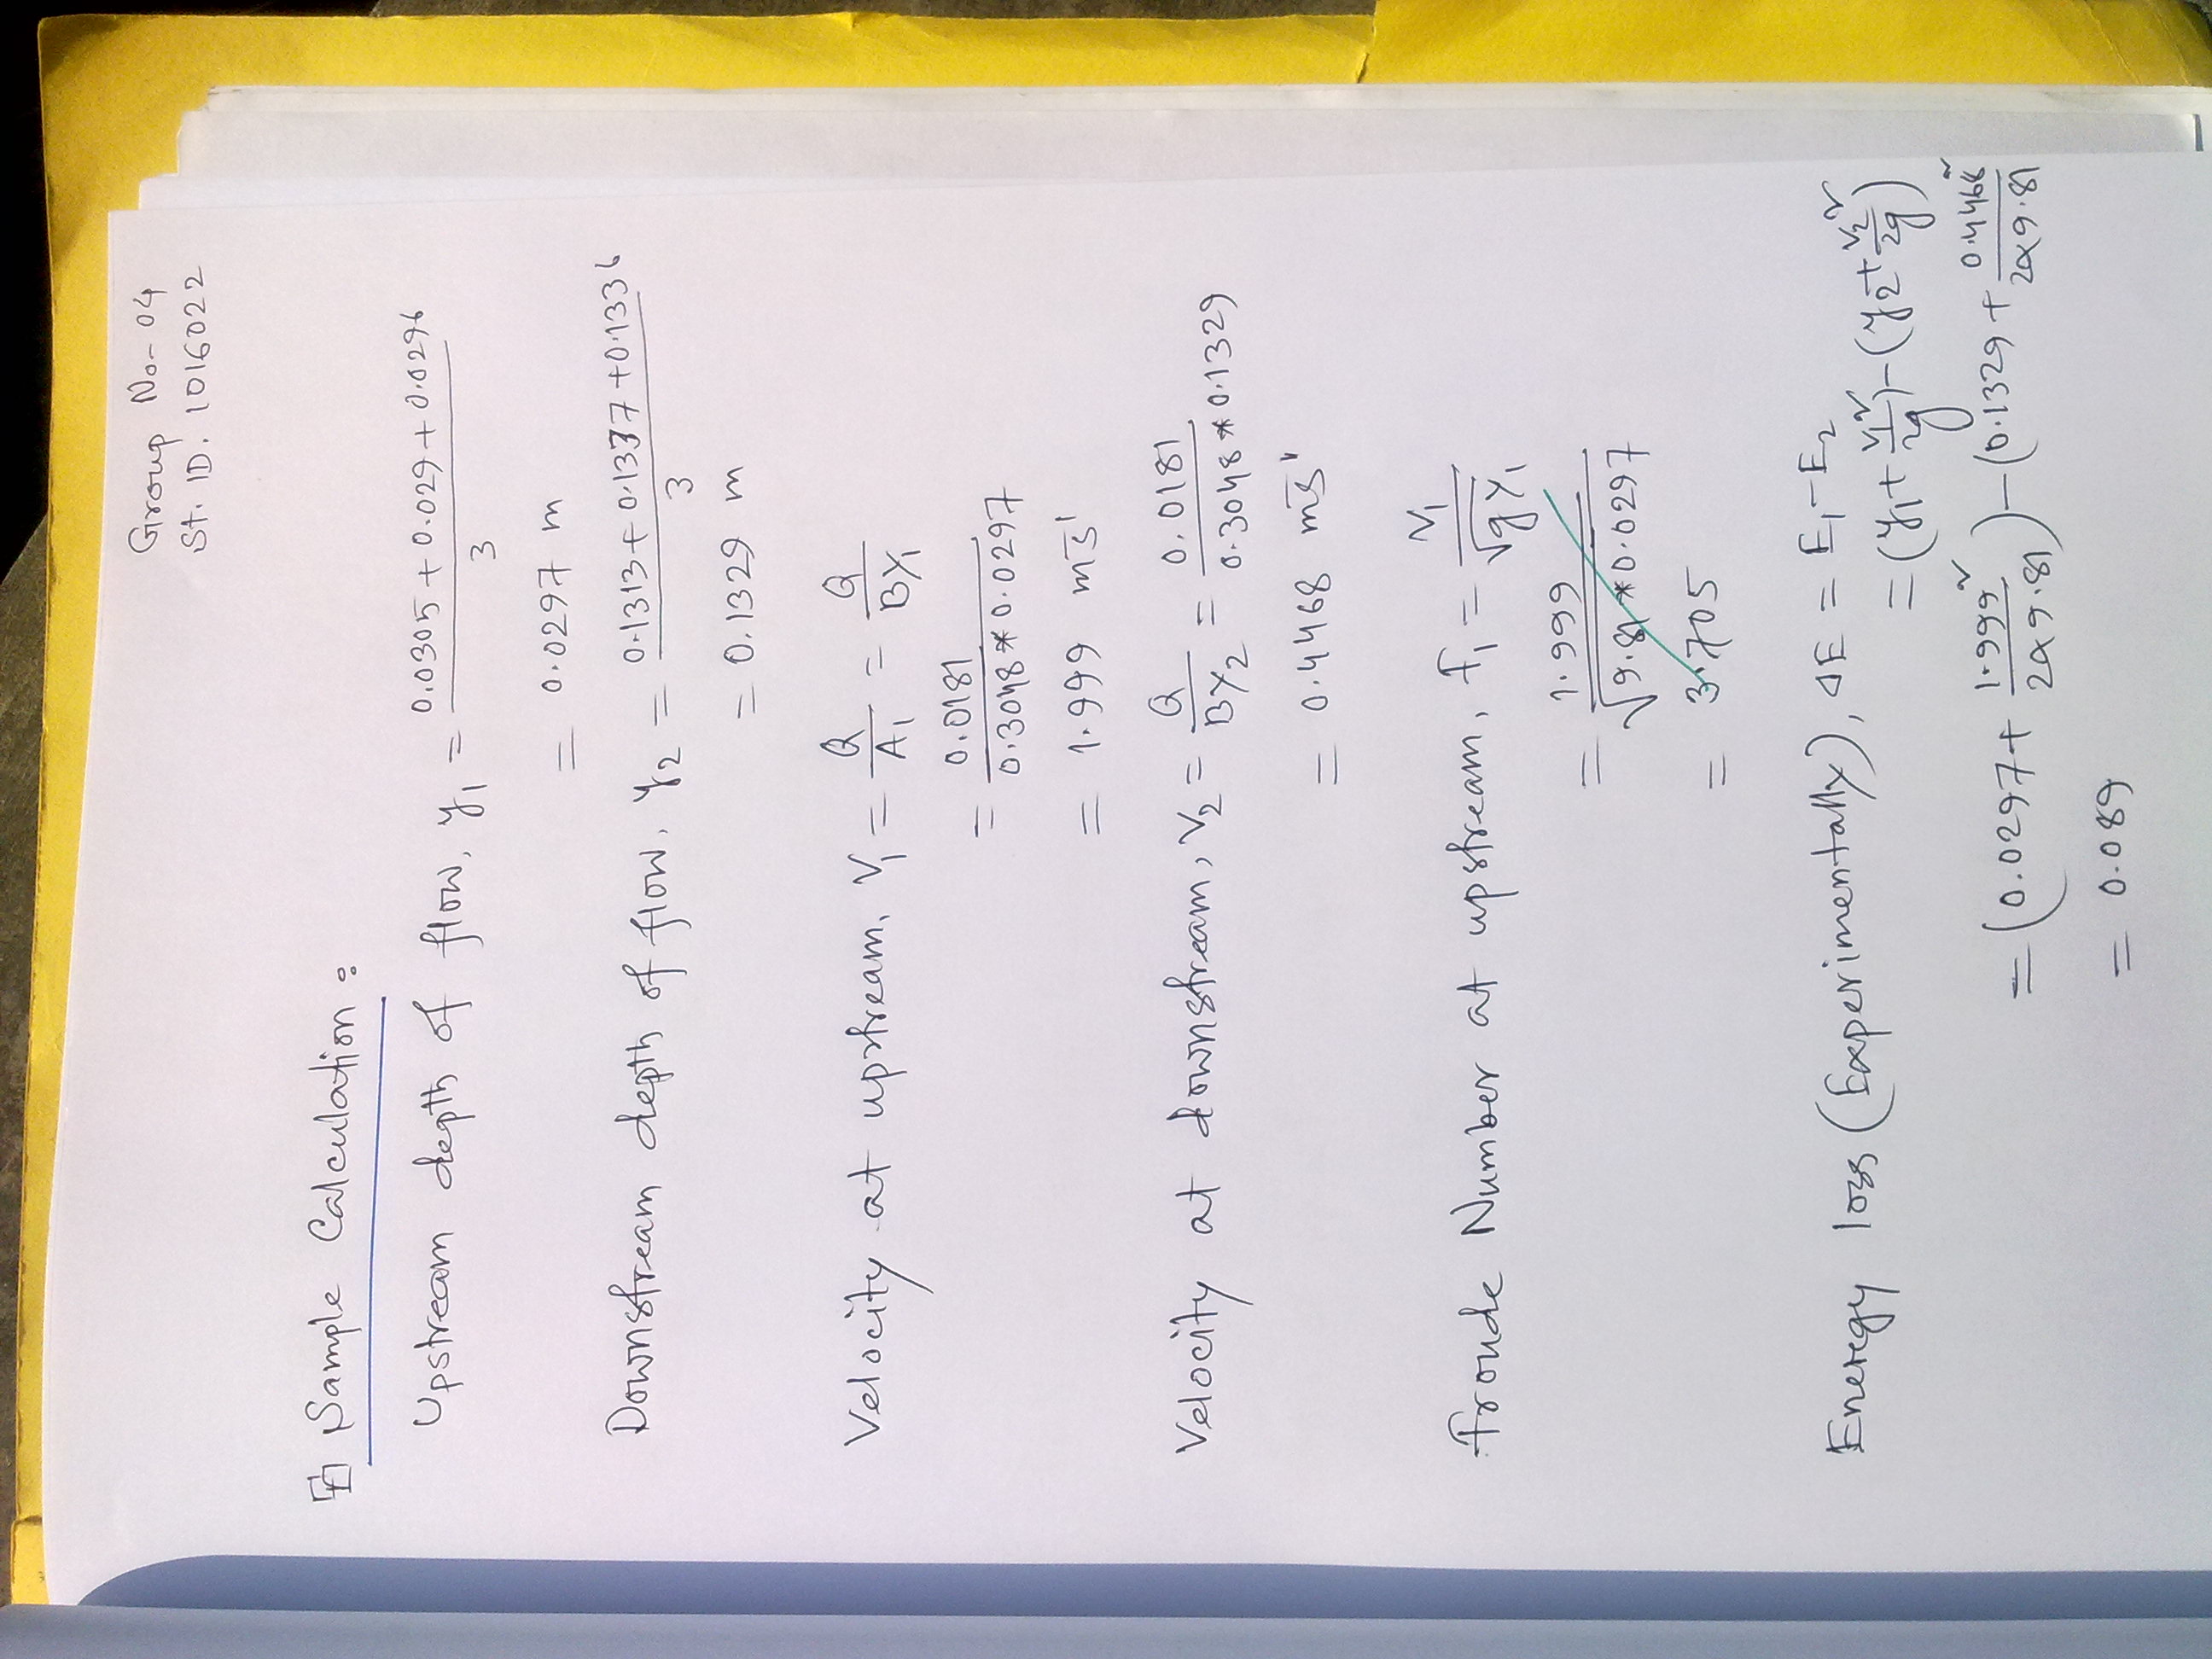 Group No-04
St. ID. 1016022
Sample Calculation:
Upstream depth of flow, y₁ = (0.0305 + 0.029 + 0.0296)/3
= 0.0297 m
Downstream depth of flow, y₂ = (0.1313 + 0.1337 + 0.1336)/3
= 0.1329 m
Velocity at upstream, V₁ = Q/A₁ = Q/BY₁
= 0.0181/(0.3048*0.0297)
= 1.999 ms⁻¹
Velocity at downstream, V₂ = Q/BY₂ = 0.0181/(0.3048*0.1329)
= 0.4468 ms⁻¹
Froude Number at upstream, F₁ = V₁/√(gY₁)
= 1.999/√(9.81*0.0297)
= 3.705
Energy loss (Experimentally), ΔE = E₁-E₂
= (y₁ + V₁²/2g) - (y₂ + V₂²/2g)
= (0.0297 + 1.999²/(2×9.81)) - (0.1329 + 0.4468²/(2×9.81))
= 0.089